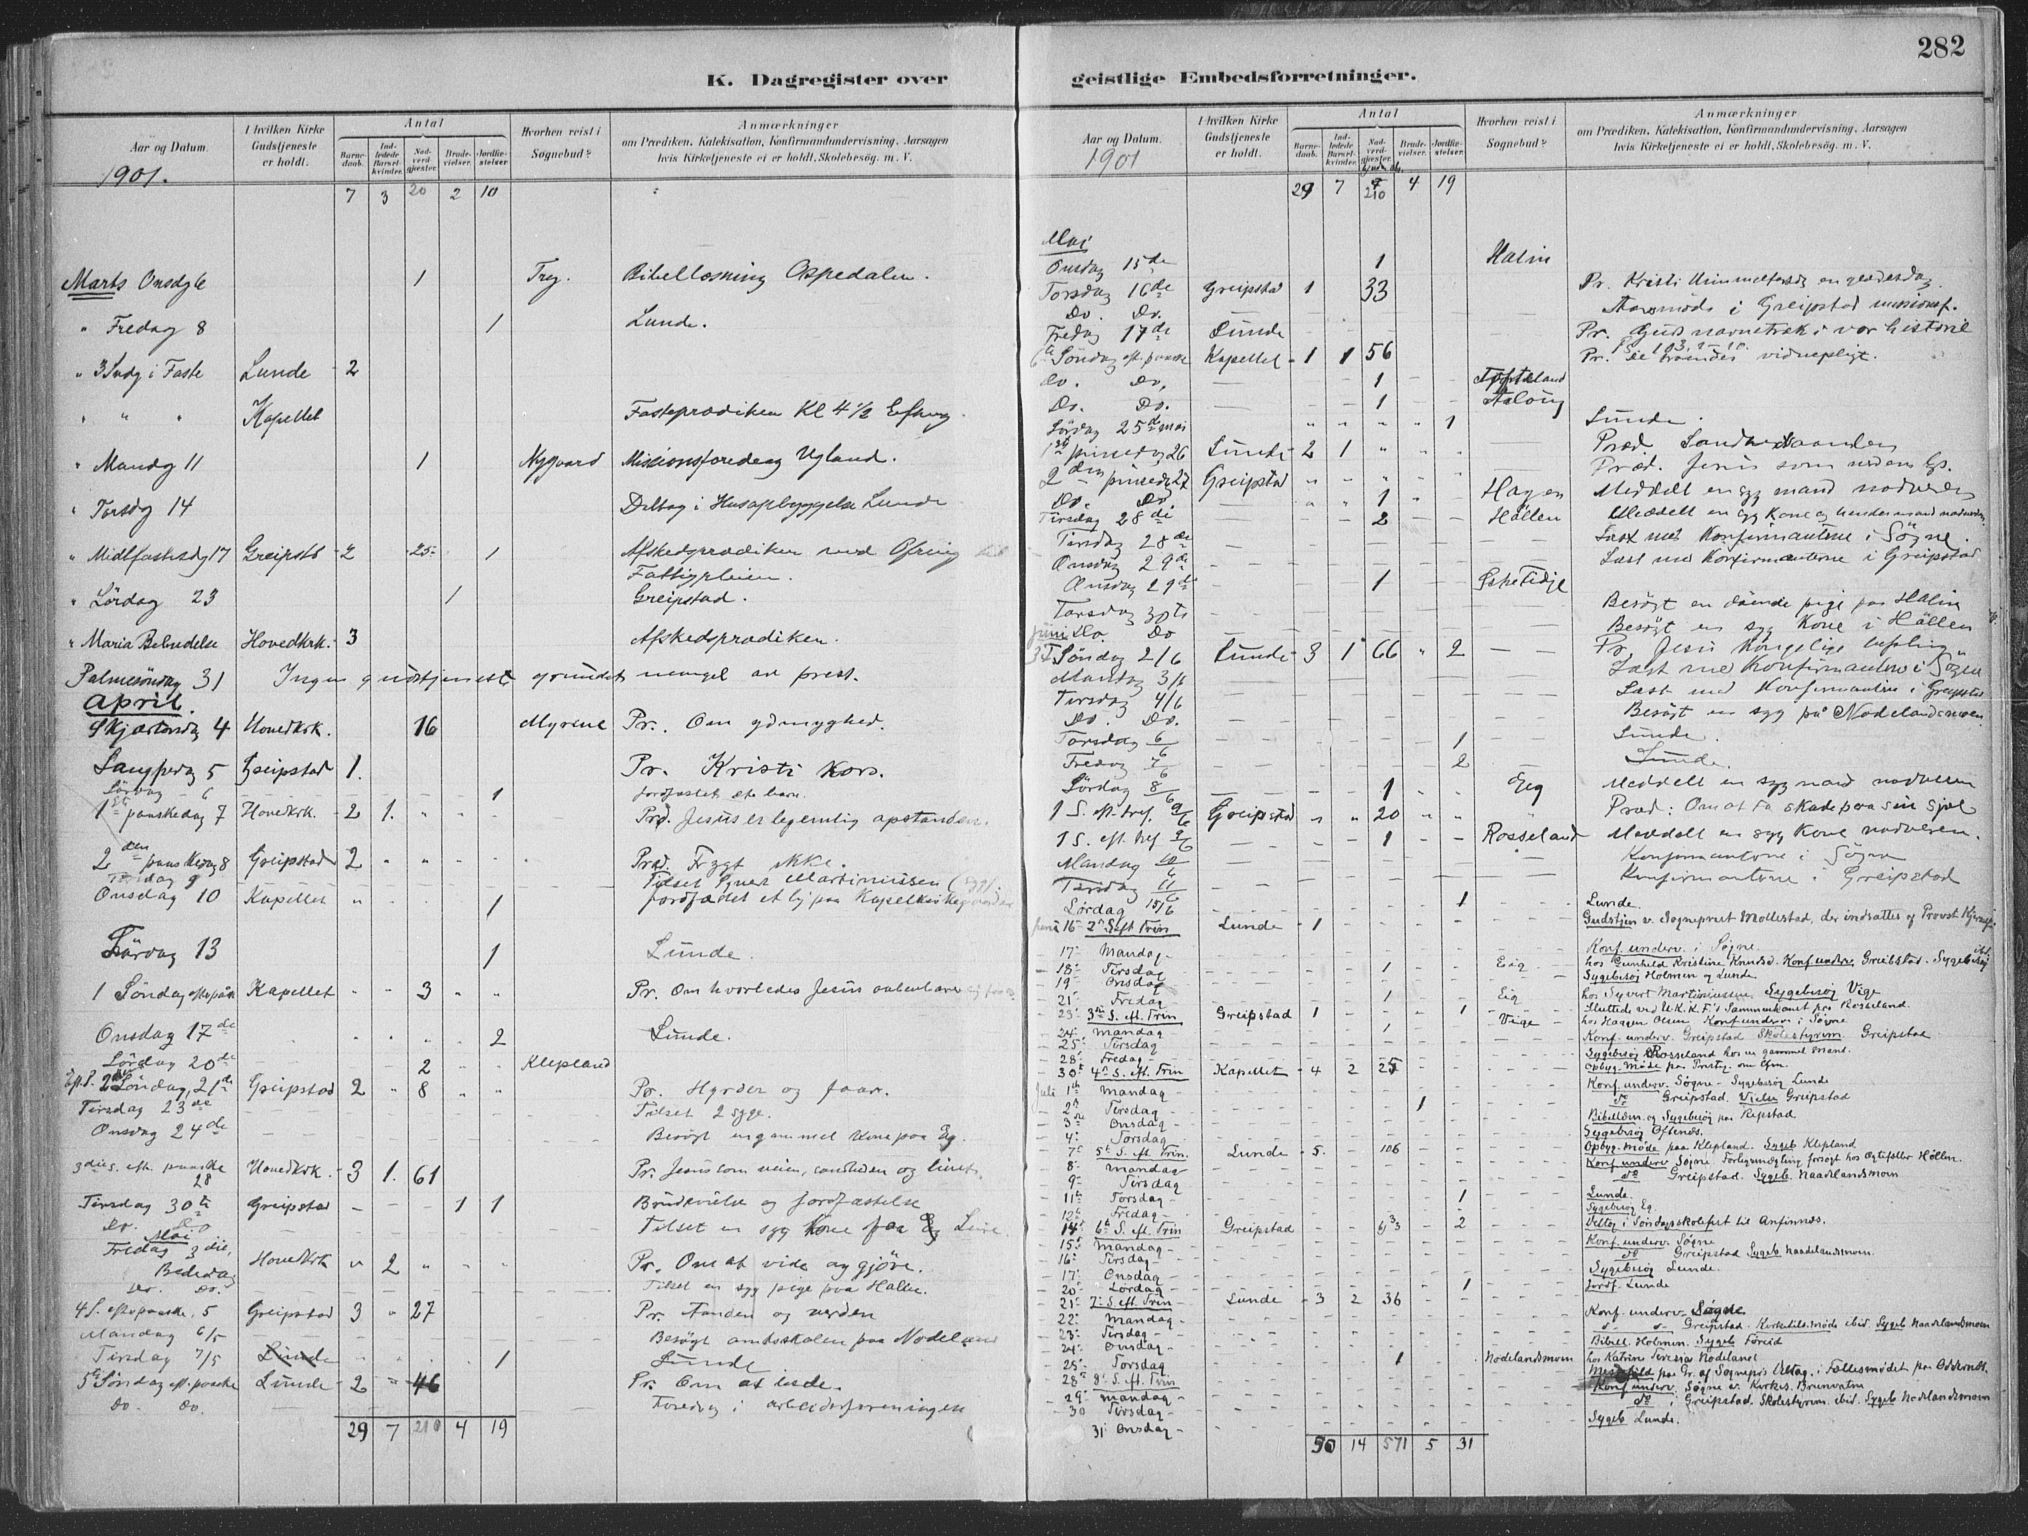 282
K. Dagregister over
Aar og Datum.
I hvilken Kirke Gudstjeneste er holdt.
Antal
Barne-daab.
Ind-ledede Barsel-kvinder.
Nad-verd-gjester.
Brude-vielser.
Jordfæ-stelser
Hvorhen reist i Søgnebud?
Anmærkninger
om Prædiken, Katekisation, Konfirmandundervisning, Aarsagen
hvis Kirketjeneste ei er holdt, Skolebesøg. m. V.
1901.
7 3 20 2 10
Marts Onsdg 6 1 Trg. Bibellæsning Oppedalen.
" Fredag 8 1 Lunde.
" 3 Sndg i Faste Lunde 2
" " " Kapellet Fasteprædiken Kl 4½ Efmdg.
" Mandg 11 1 Nygaard Missionsforedrag Ugland.
" Torsdg 14 Deltog i Husopbyggelse Lunde
" Midtfastesdg 17 Greipstd 2 25 1 Afskedsprædiken med Ofring
Fattigpleien.
" Lördag 23 1 Greipstad.
" Maria Bebudelse Hovedkrk. 3 Afskedsprædiken.
Palmesöndag 31 Ingen gudstjeneste grundet mangel av prest.
April.
Skjærtorsdag 4 Hovedkrk. 16 Myrene Pr. Om ydmyghed.
Langfredag 5 Greipstad 1. Pr. Kristi Kors.
Lördag 6 1 Jordfæstet ete barn.
1ste paaskedag 7 Hovedkrk. 2 1. " " Præd. Jesus er legemlig opstanden.
2den paaskedag 8 Greipstad 2 " " " Præd. Frygt ikke.
Tirsdag 9 Tilset Syver Martinussen (Egg).
Onsdag 10 Kapellet " 1 Jordfæstet et lig paa Kapelkirkegaarden
Lördag 13 1 Lunde.
1 Söndag efter paaske Kapellet " " 3 " " Pr. Om hvorledes Jesus aabenbarer sig for
Onsdag 17de 2 Lunde.
Lördag 20de 2 Klepland
2den Söndag 21de Greipstad 2 " 8 " " Pr. Hyrder og faar.
Tirsdag 23de Tilset 2 syge.
Onsdag 24de Besögt en gammel kone paa Eg.
3die S. eft. paaske 28 Hovedkrk. 3 1. 61 Pr. Jesus som veien, sandheden og livet.
Tirsdag 30te Greipstad 1 1 Brudevielse og jordfæstelse
Do. Do Tilset en syg kone paa Eg
Mai
Fredag 3die, Bededag Hovedkrk " 2 " " Pr. Om at vide og gjöre.
Do. Do. Tilset en syg pige paa Halle.
4 S. efter paaske. 5 Greipstad 3 " 27 Pr. Aanden og verden
Mandag 6/5 Besögt amtsskolen paa Nodeland
Tirsdag 7/5 Lunde 1 Lunde
5te Söndag eft. paaske Lunde 2 " 46 Pr. Om at bede.
Do. Do. Foredrag i arbeiderforeningen
29 7 210 4 19
geistlige Embedsforretninger.
Aar og Datum.
I hvilken Kirke Gudstjeneste er holdt.
Antal
Barne-daab.
Ind-ledede Barsel-kvinder.
Nad-verd-gjester.
Brude-vielser.
Jordfæ-stelser.
Hvorhen reist i Søgnebud?
Anmærkninger
om Prædiken, Katekisation, Konfirmandundervisning, Aarsagen
hvis Kirketjeneste ei er holdt, Skolebesøg. m. V.
1901
29 7 210 4 19
Mai
Onsdag 15de 1 Halin
Torsdag 16de Greipstad 1 33 Pr. Kristi Himmelfartsdg en glædesdag
Do. Do. Aarsmöde i Greipstad missionsf.
Fredag 17de Lunde Pr. Guds navnetræk i vor historie
6te Söndag eft. paaske Kapellet 1 1 56 Pr. De troendes vidnepligt.
Do. Do. 1 Tofteland
Do. Do. 1
Lördag 25de mai " " " " 1 Lunde.
1ste pinsedag 26 Lunde 2 1 " " Præd. Sandhedsaanden
2den pinsedg 27 Greipstad " " " Præd. Jesus som
Do. Do 1 Hagen Meddelt en syg mand nadveren
Tirsdag 28de 2 Höllen Meddelt en syg Kone og hendes mand nadveren.
Tirsdag 28de Læst med Konfirmanterne i Sögne.
Onsdag 29de Læst med Konfirmanterne i Greipstad
Onsdag 29de 1
Torsdag 30te Besögt en döende pige paa Halin
Juni Do. Do Besögt en syg Kone i Höllen
Söndag 2/6 Lunde 3 1 66 " 2 Pr. Jesu kongelige befaling
Mandag 3/6 Læst med Konfirmanterne i Sögne
Tirsdag 4/6 Læst med Konfirmanterne i Greipstad
Do. Do. Besögt en syg på Nodelandsmoen.
Torsdag 6/6 1 Lunde.
Fredag 7/6 2 Lunde.
Lördag 8/6 1 Eeg Meddelt en syg mand nadveren
1 S. eft. tref. 9/6 Greipstad " " 20 " " Præd: Om at ta skade paa sin sjæl
1 S. eft. tref 9/6 1 Rosseland Meddelt en syg kone nadveren.
Mandag 10/6 Konfirmanterne i Sögne
Tirsdag 11/6 Konfirmanterne i Greipstad
Lördag 15/6 1 Lunde.
Juni 16 2n S eft Trin Lunde 1 Gudstjen v. Sogneprest Mollestad, der indsattes af Provst
17 Mandag Konf. underv. i Søgne.
18 Tirsdag 1 Eig hos Gunhild Kristine Knudsd. Konf. underv. Greibstad. Sygebesøg ibid
19 Onsdag Sygebesøg Holmen og Lunde
21 Fredag 1 Eig hos Syvert Martiniussen. Sygebesøg Vige
23 3die S. eft. Trin Greipstad 1 1 Sluttede ved U.K.K.F.'s Sammenkomst paa Rosseland.
24 Mandag 1 Vige hos Haagen Olsen Konf underv i Søgne
25 Tirsdag Konf. underv. Greipstad Skolestyrem. Greipstad
28 Fredag Sygebesøg Rosseland hos en gammel Mand.
30 4e S. eft. Trin Kapellet 4 2 25 Opbyg. Møde paa
Juli 1 Mandag Konf underv. Søgne - Sygebesøg Lunde
2 Tirsdag 1 do Greipstad Vielse Greipstad
3 Onsdag Bibellæsn. og Sygebesøg paa Repstad
4 Torsdag Sygebesøg Oftenæs.
7 5te S. eft Trin. Lunde 5. 106 Opbyg. Møde paa Klepland. Sygeb Klepland
8 Mandag Konf underv Søgne
9 Tirsdag do Greipstad. Sygeb. Naadlandsmoen
11 Torsdag 1 Lunde.
12 Fredag Sygebesøg Eg.
14 6te S. eft. Trin Greipstad 33 2 Deltog i Søndagsskolefest til Anfinnæs.
15 Mandag Konf. underv. Søgne
16 Tirsdag do Greipstad Sygeb. Naadlandsmoen.
17 Onsdag Sygebesøg Lunde.
20 Lørdag 1 Jordf. Lunde
21 7e S. eft Trin Lunde 3 2 36
22 Mandag Konf. underv. Søgne
23 Tirsdag Greipstad. Sygeb Naadlandsmoen
24 Onsdag Bibell. Holmen. Sygeb
25 Torsdag 1 Nodelandsmoen hos Katrine Teresia Nodeland
28 8e S. eft. Trin
29 Mandag Konf underv. Søgne
30 Tirsdag do i Greipstad. Skolestyrem. ibid. Sygeb Nodelandsmoen
31 Onsdag Sygeb Lunde.
50 14 571 5 31